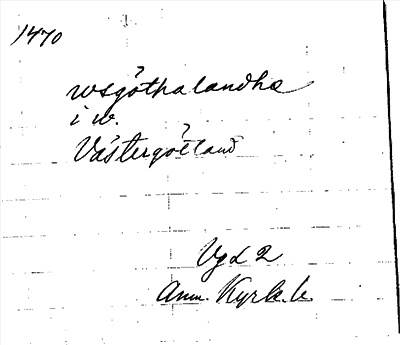 1470
wsgöthalandha
i w.
Västergötland
Vgd 2
Anm. Kyrk. b.